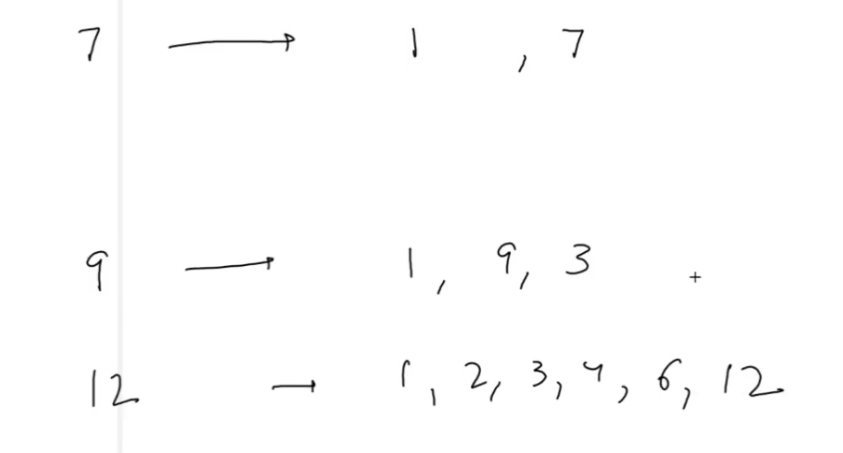 7 → 1 , 7
9 → 1, 9, 3
12 → 1, 2, 3, 4, 6, 12